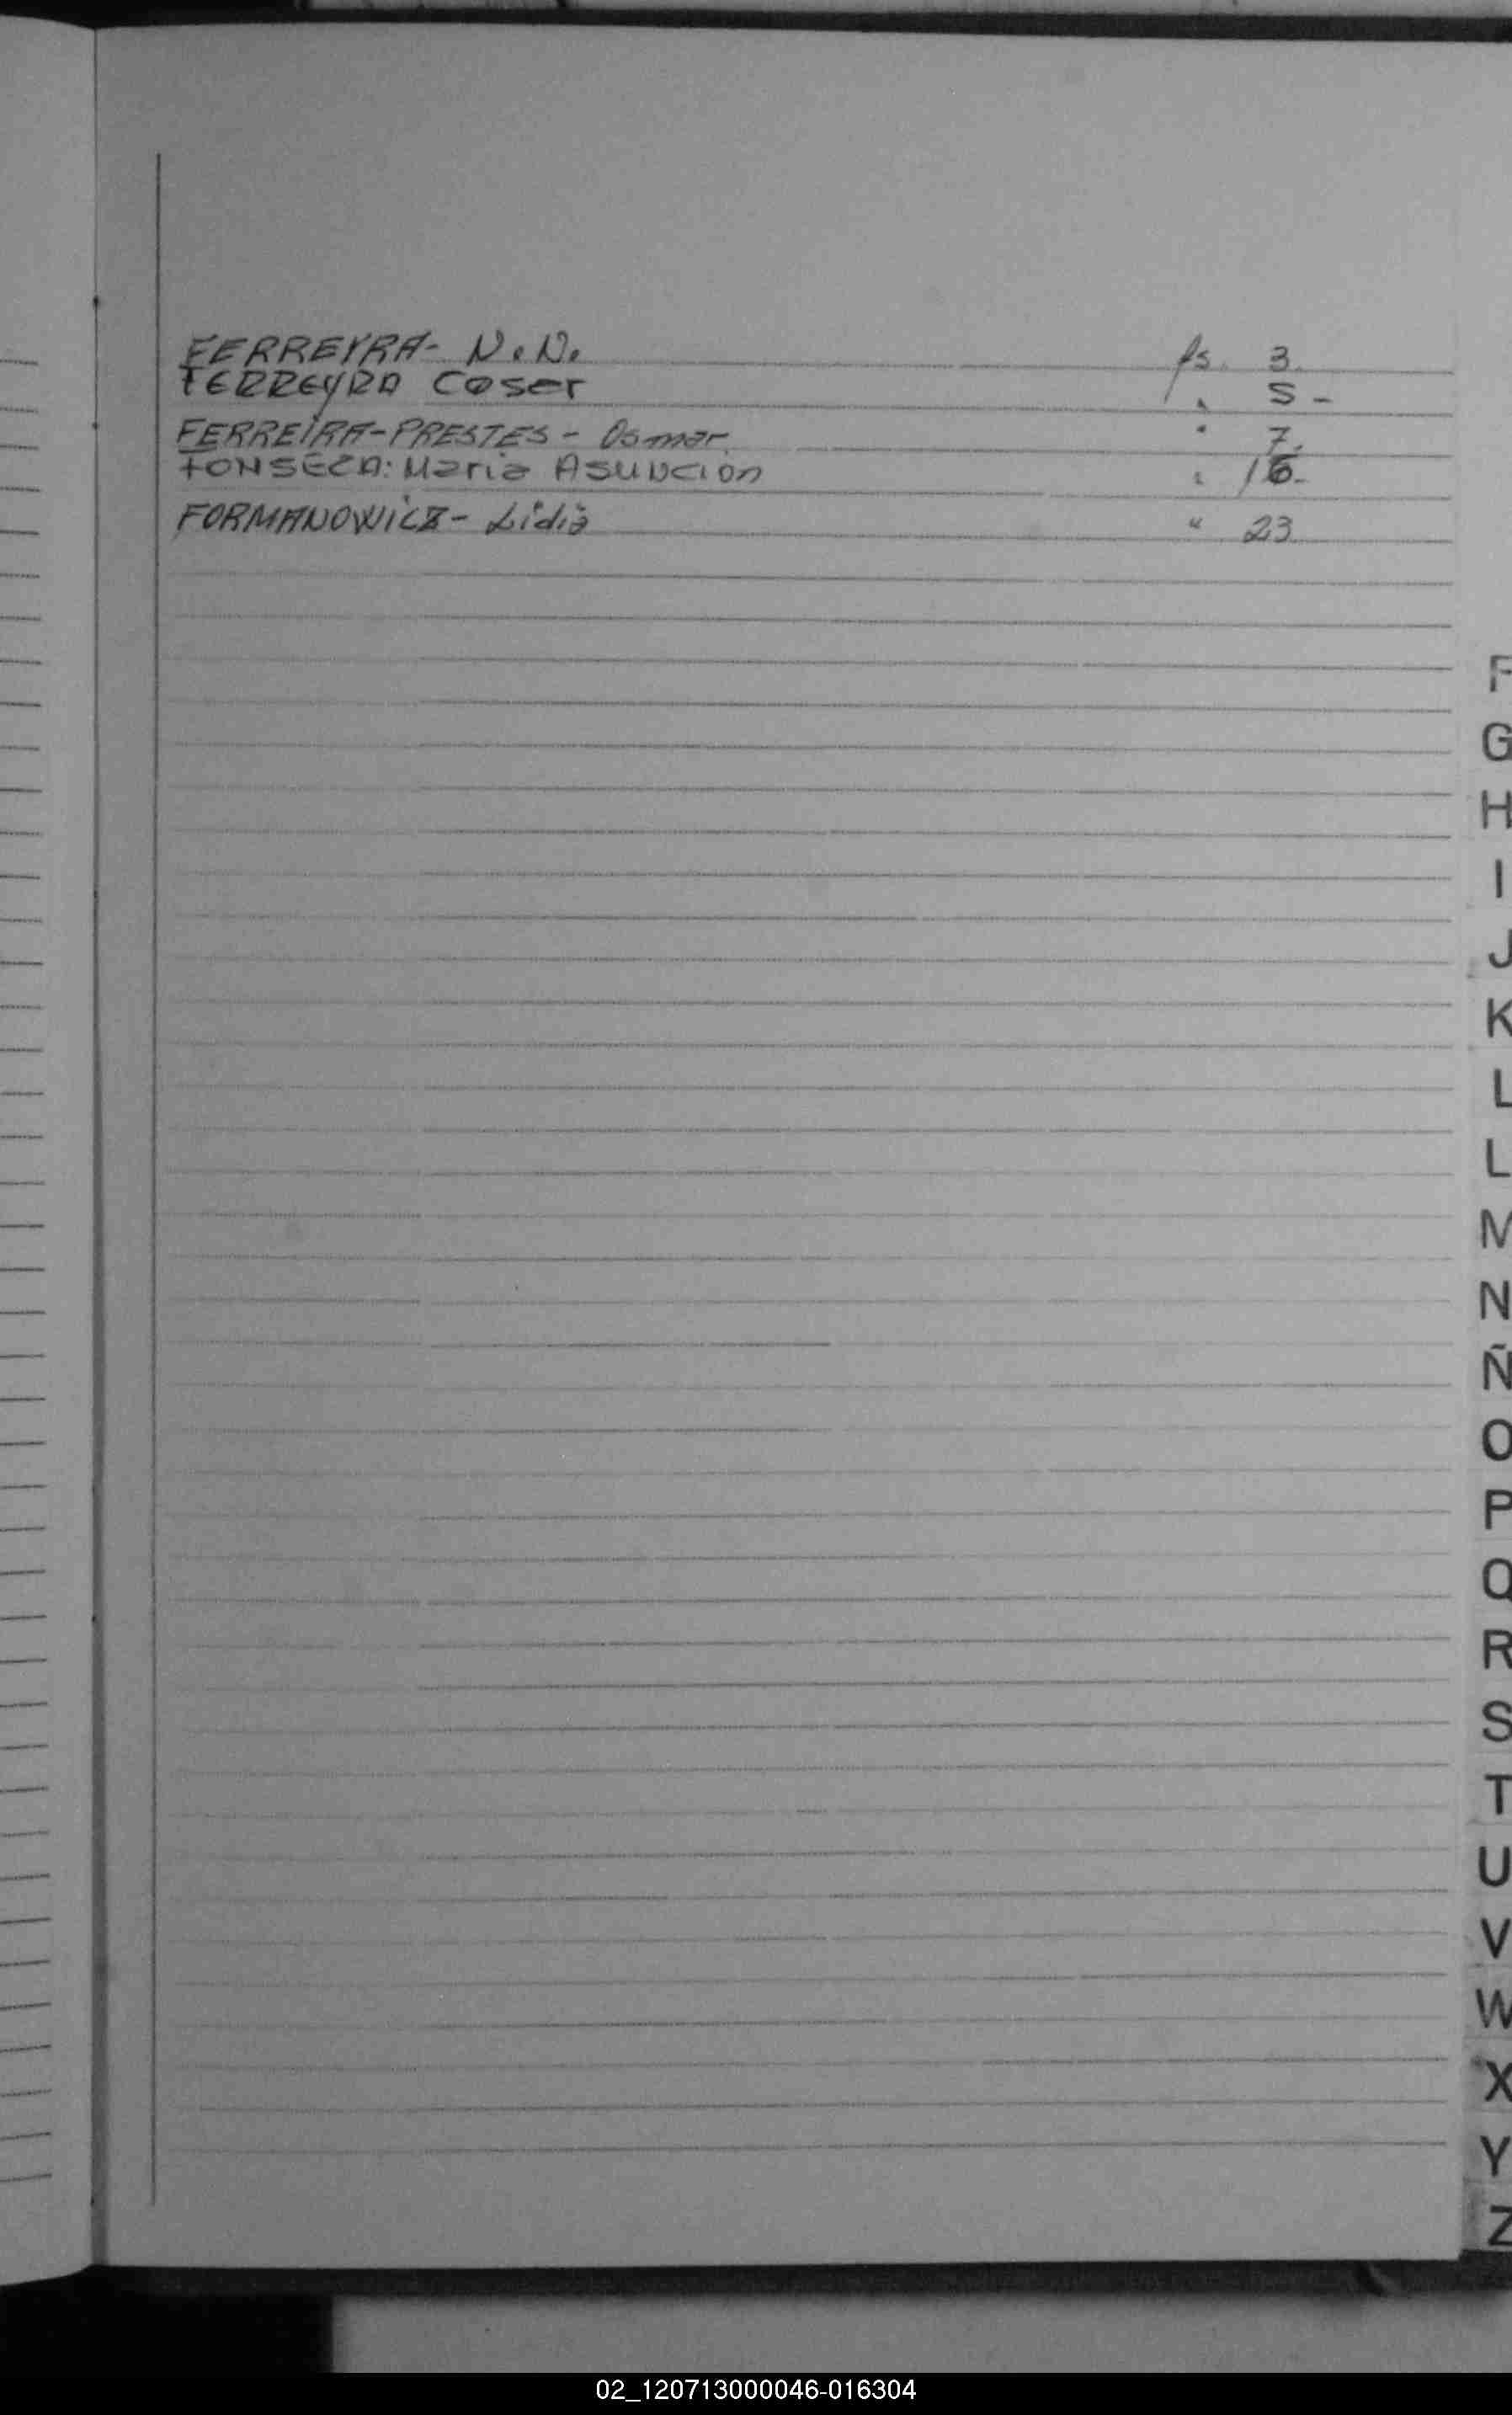 FERREYRA- N.N. fs. 3.
FERREYRA Coser " 5 -
FERREIRA-PRESTES - Osmar. " 7.
FONSECA: Maria Asuncion " 16.
FORMANOWICZ- Lidia " 23
F
G
H
I
J
K
L
L
M
N
Ñ
O
P
Q
R
S
T
U
V
W
X
Y
Z
02_120713000046-016304